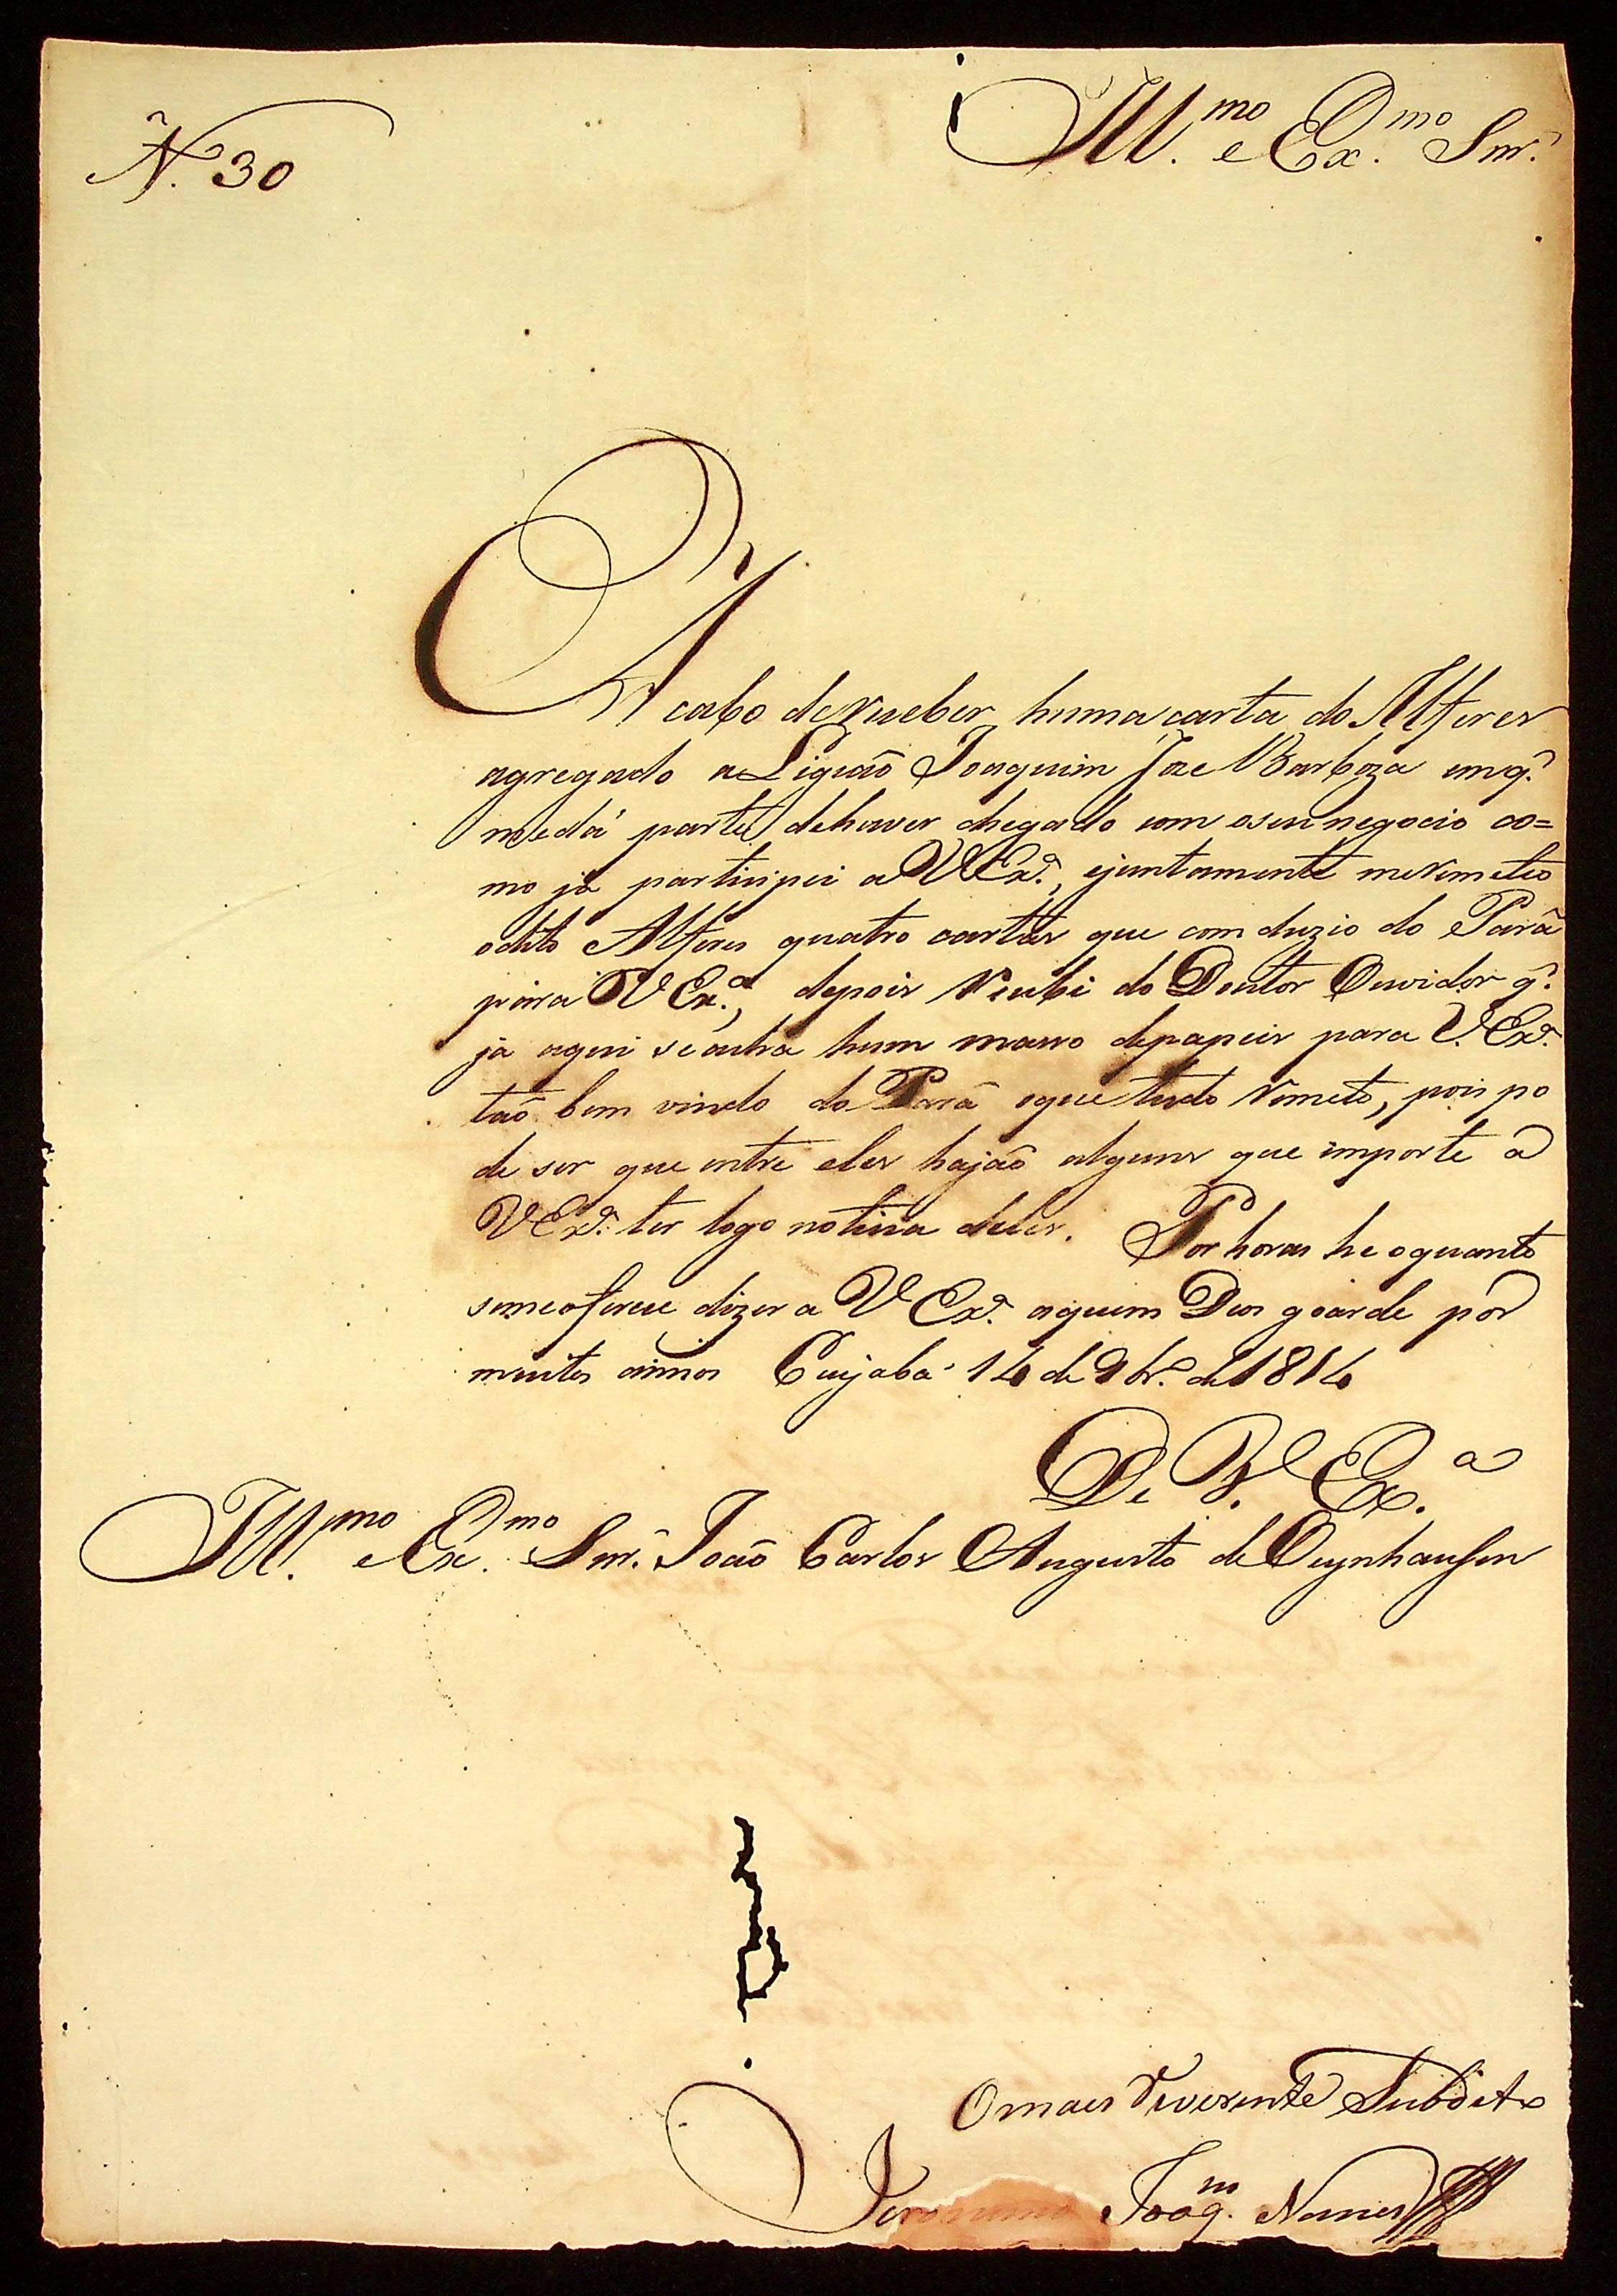 N. 30
Ill.mo e Ex.mo Snr.
Acabo de receber huma carta do Alferes
agregado a Ligiaõ Joaquim Joze Barboza em q.
me dá parte de haver chegado com o seu negocio co=
mo já participei a V Ex.ª, e juntamente me remeteo
o dito Alferes quatro cartas que comduzio do Pará
para V Ex.ª, depois recebi do Doutor Ouvidor q.
ja aqui se acha hum masso de papeis para V. Ex.ª
taõ bem vindo do Pará o que tudo remeto, pois po
de ser que entre eles hajaõ alguns que importe a
V Ex.ª ter logo noticia deles. Por horas he o quanto
se me oferece dizer a V Ex.ª a quem Deos goarde por
muitos annos Cuyabá 14 de 9br.º de 1814
De V. Ex.ª
Ill.mo e Ex.mo Snr. Joaõ Carlos Augusto de Oeynhausen
O mais reverente Subdito
Jeronimo Joaq.m Nunes